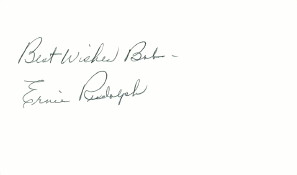 Best Wishes Bob -
Ernie Rudolph